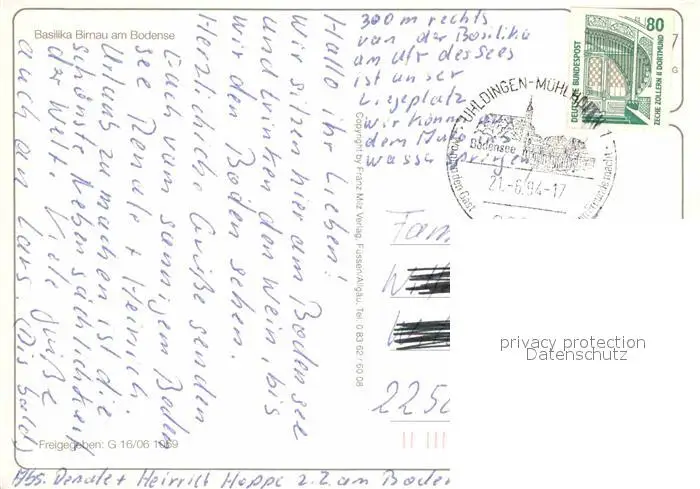 Basilika Birnau am Bodense
Hallo ihr Lieben!
Wir sitzen hier am Bodensee
und trinken den Wein, bis
wir den Boden sehen.
Herzliche Grüße senden
Euch vom sonnigem Boden
see Renate + Heinrich.
Urlaub zu machen ist die
schönste Nebensächlichkeit
der Welt. Viele Grüße
auch an Lars. (Bis bald)
300 m rechts
von der Basilika
am Ufr des Sees
ist unser
Liegeplatz
wir können aus
dem Auto ins
wasser springen
Copyright by Franz Milz Verlag, Füssen/Allgäu, Tel. 0 83 62 / 60 08
DEUTSCHE BUNDESPOST
80
ZECHE ZOLLERN II DORTMUND
7
G
UHLDINGEN-MÜHLHOFEN 1
Bodensee
21.-6.94-17
Fam
225
privacy protection
Datenschutz
Freigegeben: G 16/06 1069
Abs. Renate + Heinrich Hoppe z.Z. am Boden